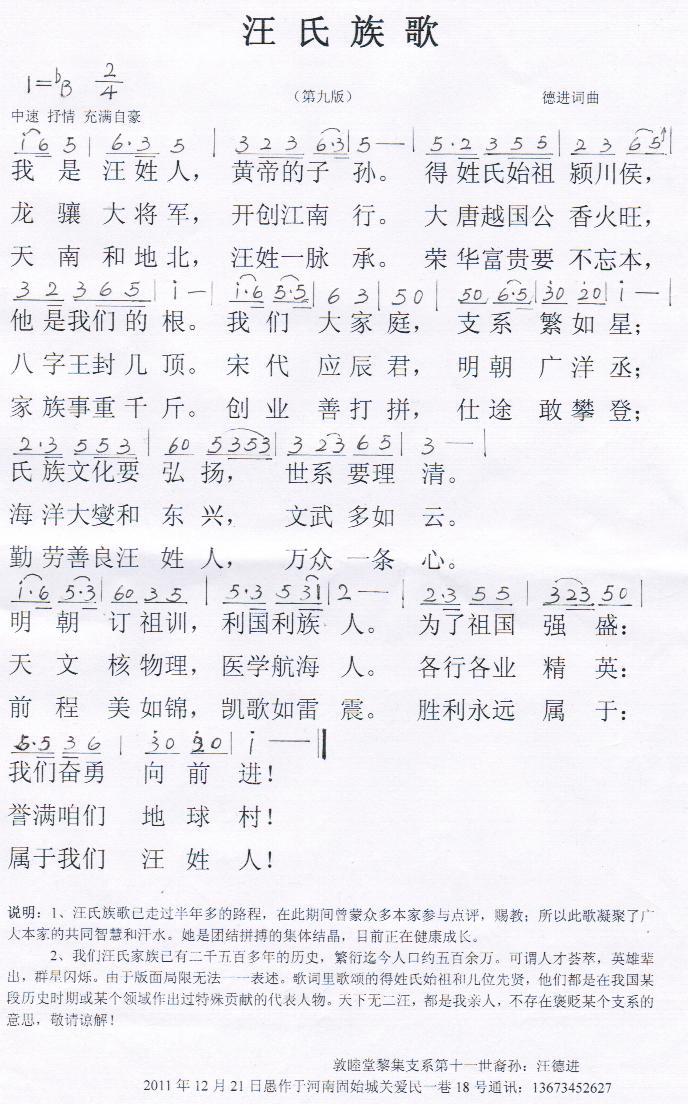 汪氏族歌
1=ᵇB 2/4
（第九版） 德进词曲
中速 抒情 充满自豪
i6 5 | 6·3 5 | 3 2 3 6·3 | 5 — | 5·2 3 5 5 | 2 3 6 5 |
我是汪姓人，黄帝的子孙。得姓氏始祖 颍川侯，
龙骧大将军，开创江南行。大唐越国公 香火旺，
天南和地北，汪姓一脉承。荣华富贵要 不忘本，
3 2 3 6 5 | i — | i·6 5·5 | 6 3 | 5 0 | 5 0 6·5 | 3 0 2 0 | i — |
他是我们的根。我们大家庭，支系繁如星；
八字王封几顶。宋代应辰君，明朝广洋丞；
家族事重千斤。创业善打拼，仕途敢攀登；
2·3 5 5 3 | 6 0 5 3 5 3 | 3 2 3 6 5 | 3 — |
氏族文化要弘扬，世系要理清。
海洋大燮和东兴，文武多如云。
勤劳善良汪姓人，万众一条心。
i·6 5·3 | 6 0 3 5 | 5·3 5 3 1 | 2 — | 2·3 5 5 | 3 2 3 5 0 |
明朝订祖训，利国利族人。为了祖国强盛：
天文核物理，医学航海人。各行各业精英：
前程美如锦，凯歌如雷震。胜利永远属于：
5·5 3 6 | 3 0 2 0 | i — ‖
我们奋勇向前进！
誉满咱们地球村！
属于我们汪姓人！
说明：1、汪氏族歌已走过半年多的路程，在此期间曾蒙众多本家参与点评，赐教；所以此歌凝聚了广
大本家的共同智慧和汗水。她是团结拼搏的集体结晶，目前正在健康成长。
2、我们汪氏家族已有二千五百多年的历史，繁衍迄今人口约五百余万。可谓人才荟萃，英雄辈
出，群星闪烁。由于版面局限无法一一表述。歌词里歌颂的得姓氏始祖和几位先贤，他们都是在我国某
段历史时期或某个领域作出过特殊贡献的代表人物。天下无二汪，都是我亲人，不存在褒贬某个支系的
意思，敬请谅解！
敦睦堂黎集支系第十一世裔孙：汪德进
2011年12月21日愚作于河南固始城关爱民一巷18号通讯：13673452627